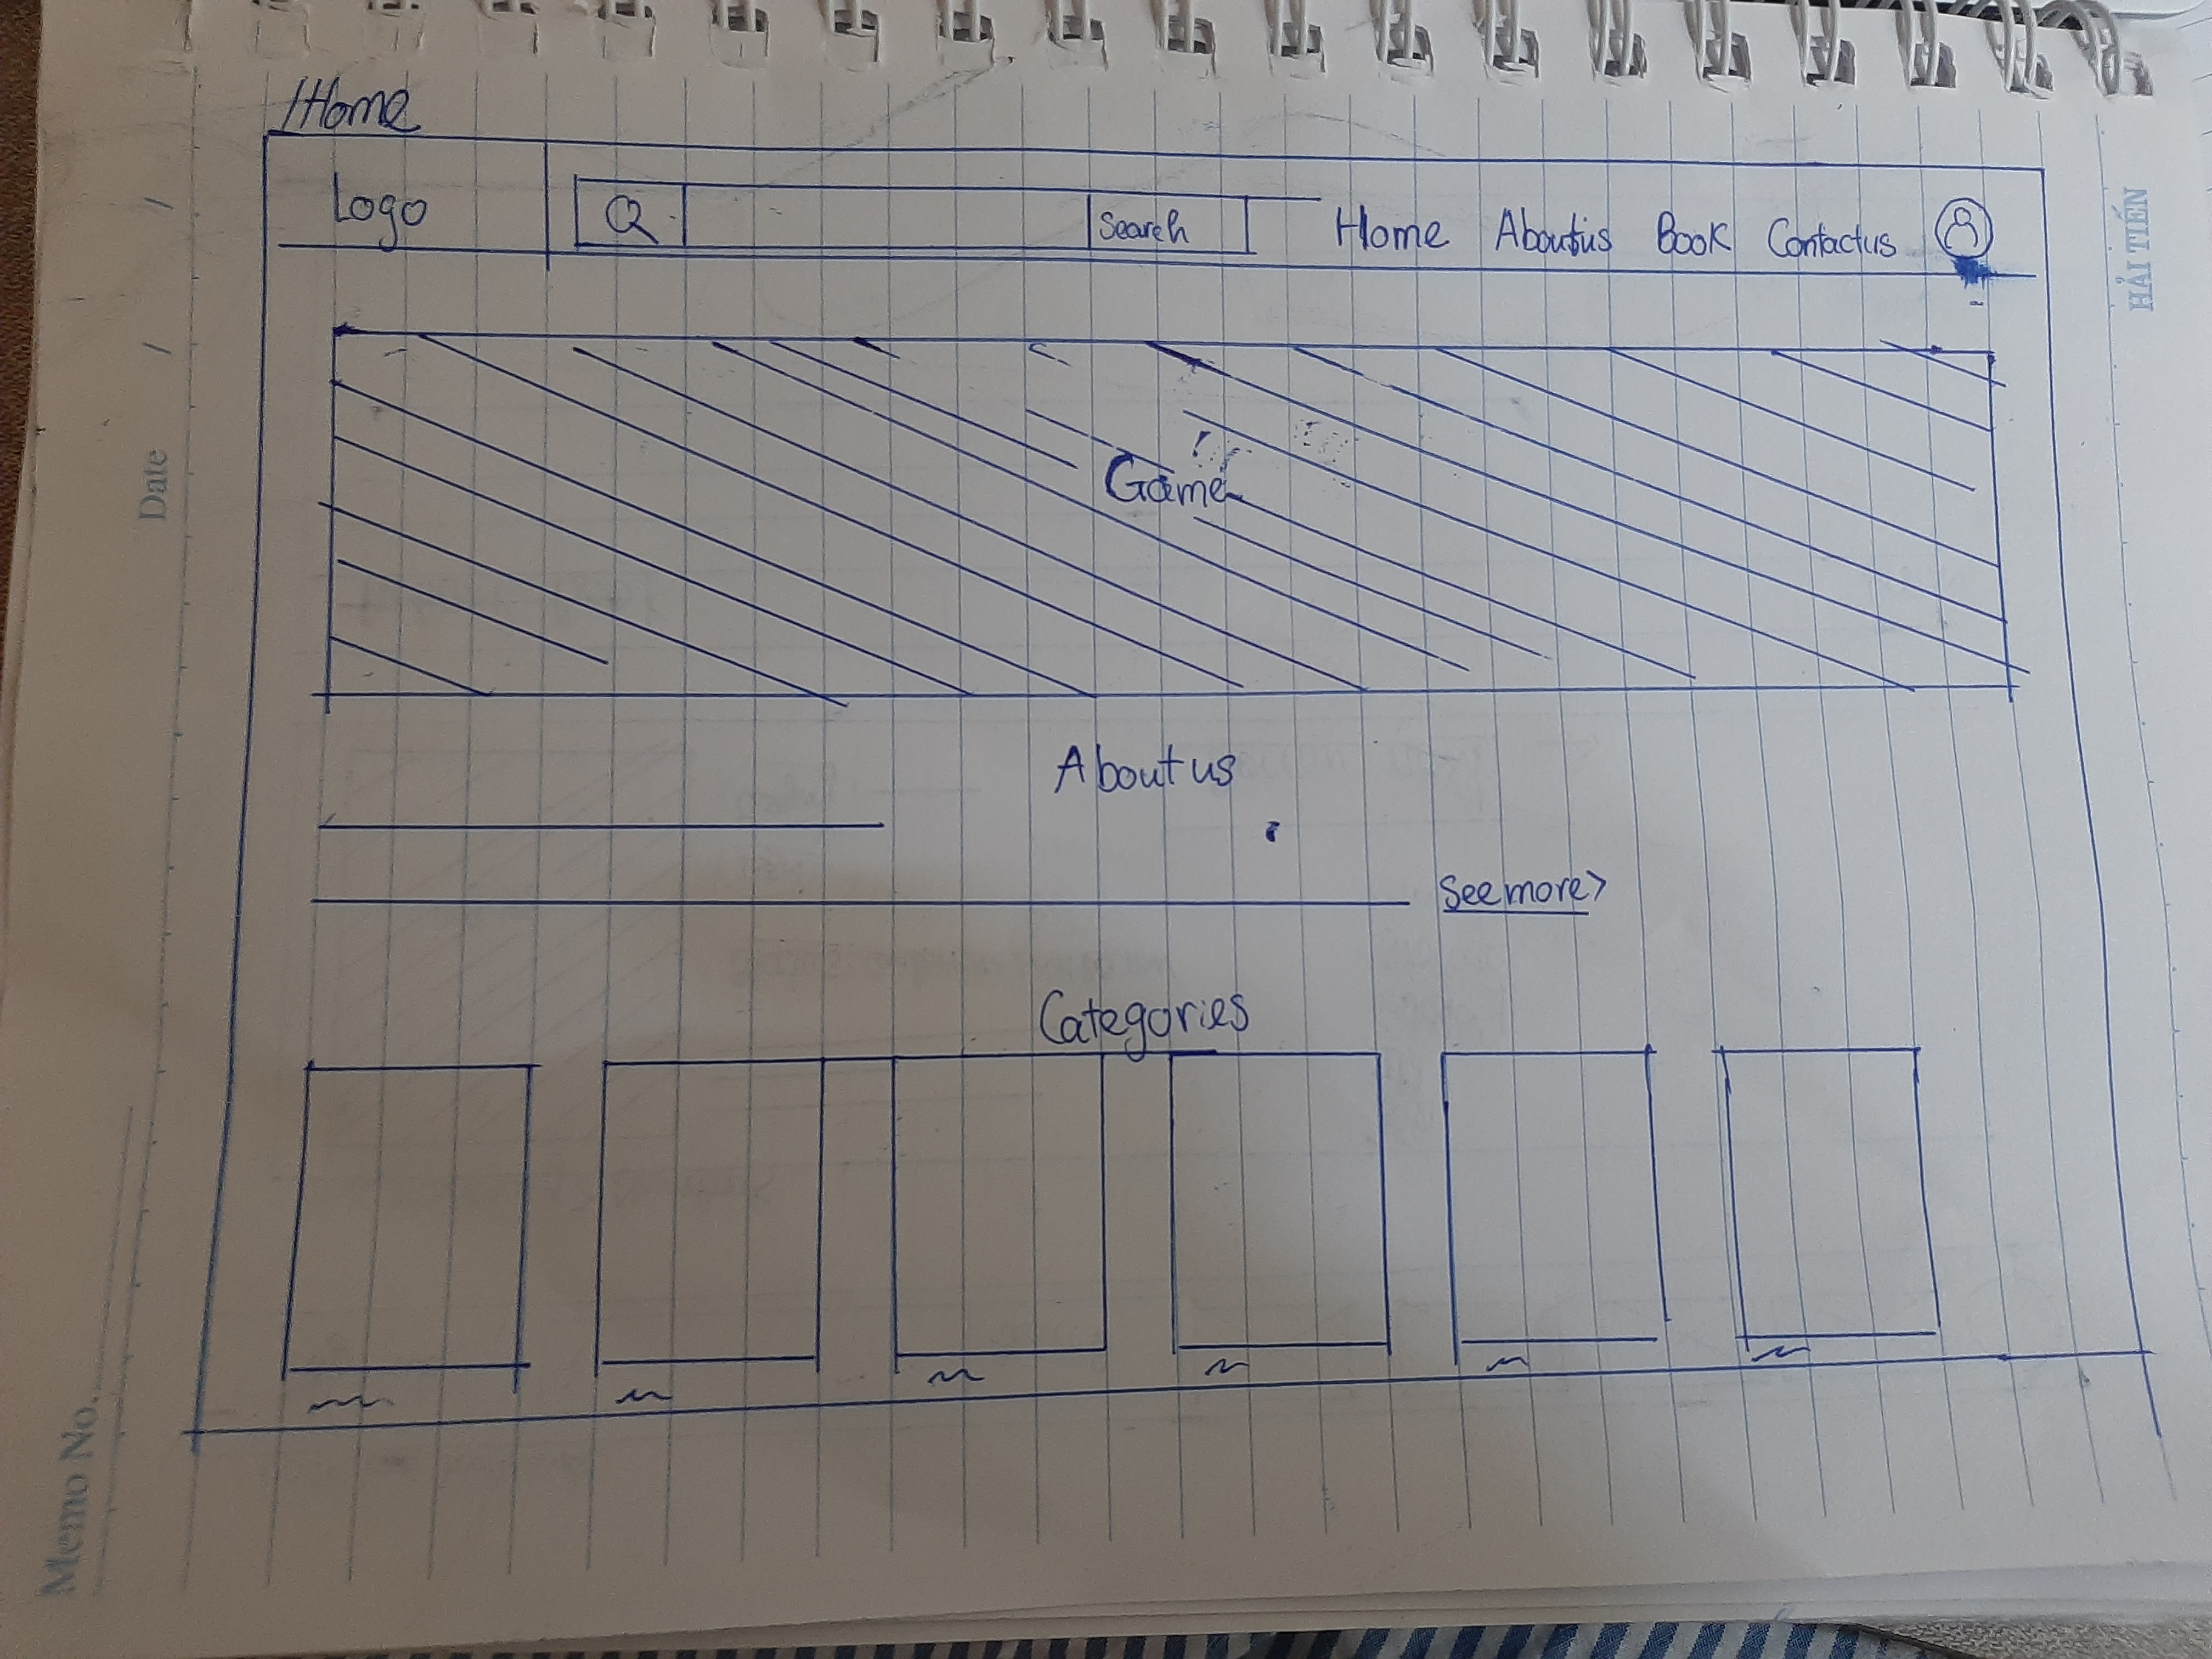 Memo No.
Date / /
Home
Logo Search Home About us Book Contact us
Game
About us
See more >
Categories
HẢI TIẾN